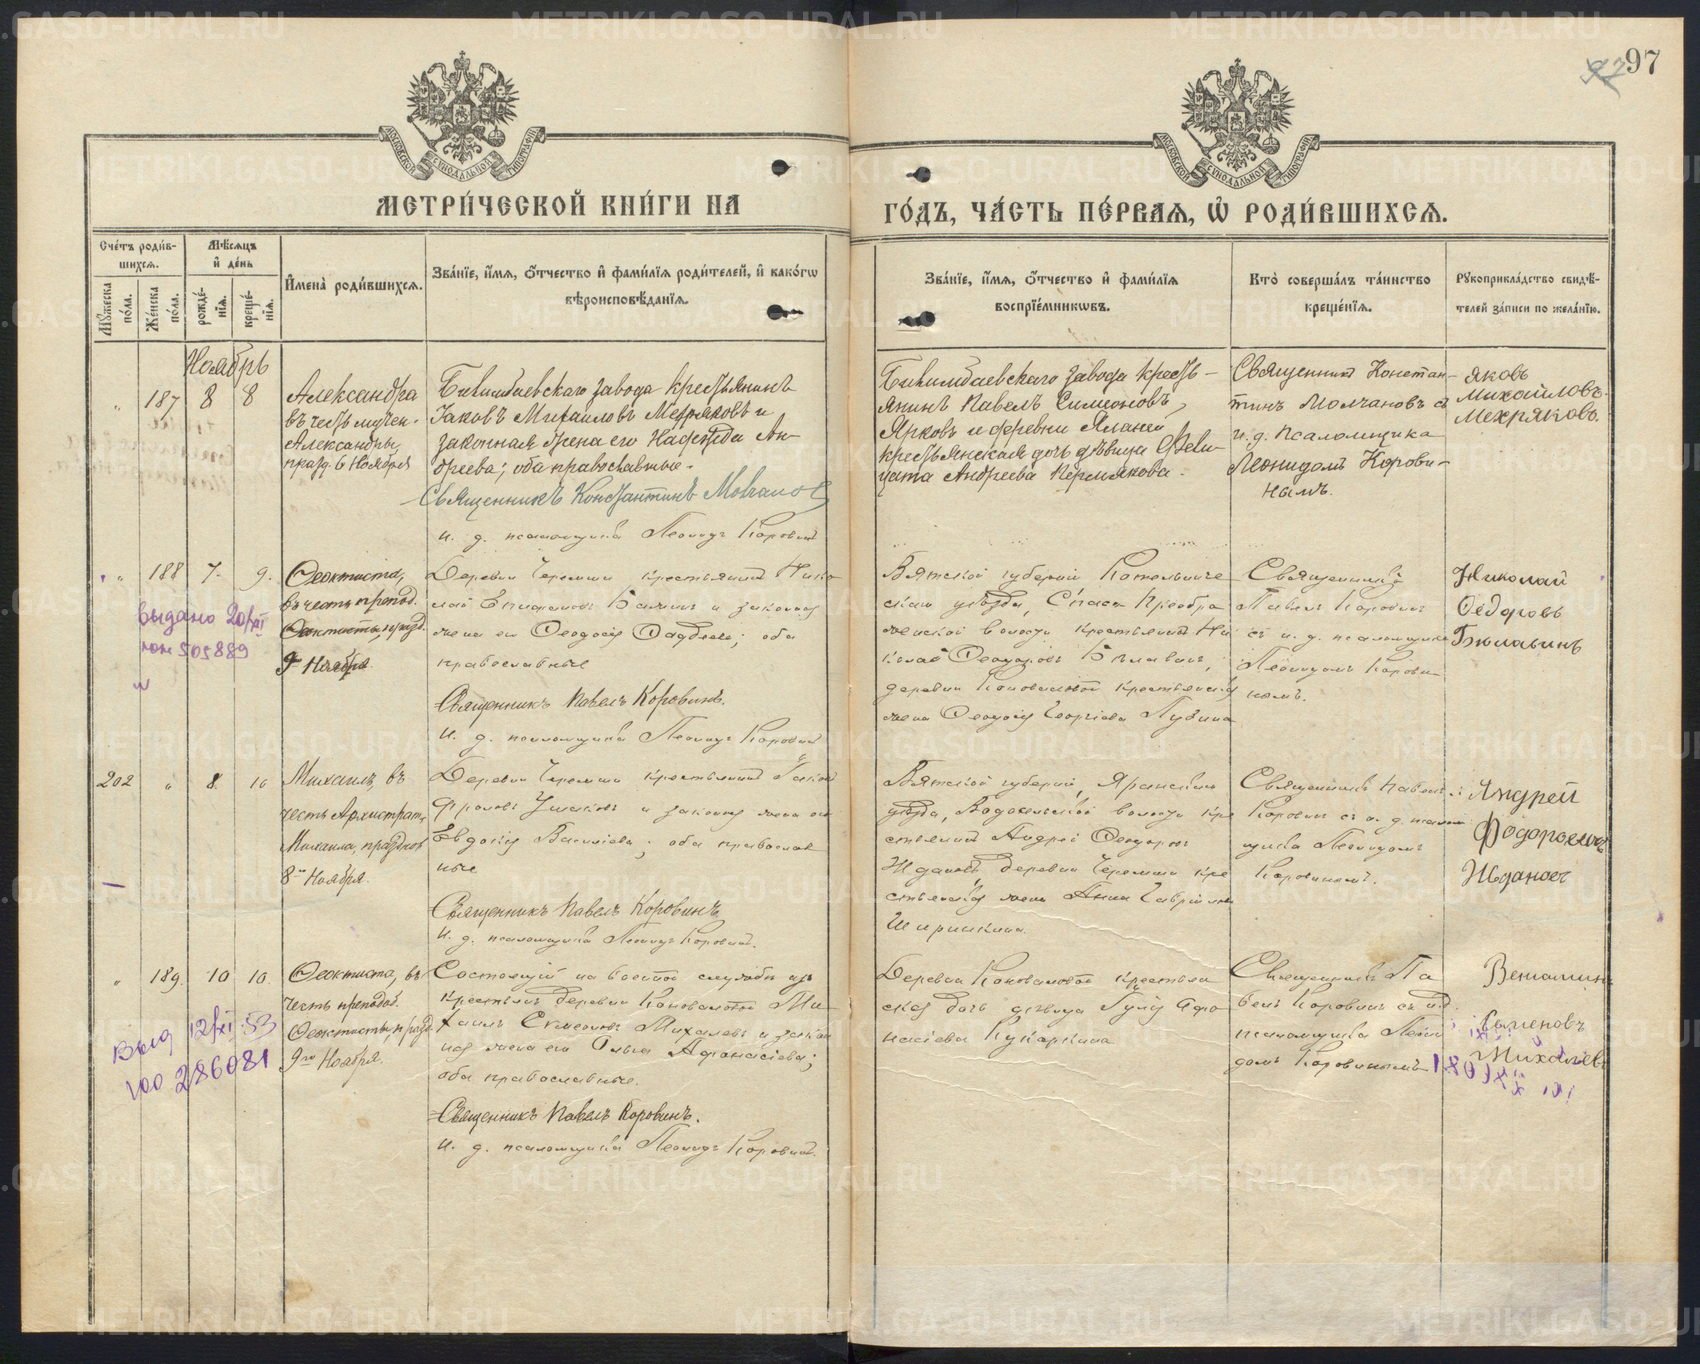 97
97
МОСКОВСКОЙ СѴНОДАЛЬНОЙ ТИПОГРАФІИ
МОСКОВСКОЙ СѴНОДАЛЬНОЙ ТИПОГРАФІИ
МЕТРИ́ЧЕСКОЙ КНИ́ГИ НА
ГО́ДЪ, ЧА́СТЬ ПЕ́РВАѦ, Ѡ҆ РОДИ́ВШИХСѦ.
Сче́тъ роди́в-
шихсѧ.
Мꙋ́жеска по́ла.
Же́нска по́ла.
Мѣ́сѧцъ
и҆ де́нь
рожде́-
нїѧ.
креще́-
нїѧ.
И҆мена̀ роди́вшихсѧ.
Зва́нїе, и҆́мѧ, ѻ҆́тчество и҆ фами́лїѧ роди́телей, и҆ како́гѡ
вѣроисповѣ́данїѧ.
Зва́нїе, и҆́мѧ, ѻ҆́тчество и҆ фами́лїѧ
воспрїе́мникѡвъ.
Кто̀ соверша́лъ та́инство
креще́нїѧ.
Рꙋкоприкла́дство свидѣ́-
телей за́писи по жела́нїю.
Ноябрь
" 187 8 8
Александра
въ честь мучен.
Александры,
празд. 6 Ноября
Билимбаевскаго завода крестьянинъ
Іаковъ Михаиловъ Мехряковъ и
законная жена его Надежда Ан-
дреева; оба православные.
Священникъ Константинъ Молчановъ
и. д. псаломщика Леонидъ Коровинъ
Билимбаевскаго завода кресть-
янинъ Павелъ Симеоновъ
Ярковъ и деревни
крестьянская дочь дѣвица Фели-
цата Андреева Пермякова.
Священникъ Констан-
тинъ Молчановъ съ
и. д. псаломщика
Леонидомъ Корови-
нымъ.
Яковъ
Михайловъ
Мехряковъ.
" 188 7. 9.
Ѳеоктиста,
въ честь препод.
Ѳеоктисты, празд.
9 Ноября
выдано 20/XI
505889
Деревни Черемши крестьянинъ Нико
лай Епифановъ и законная
жена его Ѳеодосія Ѳаддеева; оба
православные
Священникъ Павелъ Коровинъ.
и. д. псаломщика Леонидъ Коровинъ
Вятской губерніи Котельниче
скаго уѣзда, Спасо Преобра
женской волости крестьянинъ Ни
колай Ѳеодоровъ
деревни Коноваловой крестьянская
жена Ѳеодосія Георгіева
Священникъ
Павелъ Коровинъ
съ и. д. псаломщика
Леонидомъ Корови
нымъ.
Николай
Ѳедоровъ
202 " 8. 10
Михаилъ, въ
честь Архистрат.
Михаила, празднов
8го Ноября.
Деревни Черемши крестьянинъ Іаковъ
Фроловъ Ушаковъ и законная жена его
Евдокія Василіева; оба православ
ные
Священникъ Павелъ Коровинъ
и. д. псаломщика Леонидъ Коровинъ.
Вятской губерніи, Яранскаго
уѣзда, волости кре
стьянинъ Андрей Ѳеодоровъ
Ждановъ, деревни Черемши кре
стьянская жена Анна Гавріилова
Ширинкина.
Священникъ Павелъ
Коровинъ съ и. д. псалом
щика Леонидомъ
Коровинымъ.
Андрей
Фодоровичь
Ждановъ
" 189. 10 10.
Ѳеоктиста, въ
честь преподоб.
Ѳеоктисты, празд.
9го Ноября.
Выд 12/XI-53
ЮО 286081
Состоящій на военной службѣ изъ
крестьянъ деревни Коноваловой Ми-
хаилъ Симеоновъ Михалевъ и закон
ная жена его Ольга Аѳанасіева;
оба православные.
Священникъ Павелъ Коровинъ.
и. д. псаломщика Леонидъ Коровинъ.
Деревни Коноваловой крестьян
ская дочь дѣвица Юлія Аѳа
насіева Кукаркина
Священникъ Па
велъ Коровинъ съ и. д.
псаломщика Леони
домъ Коровинымъ
Веніаминъ
Семеновъ
Михалевъ